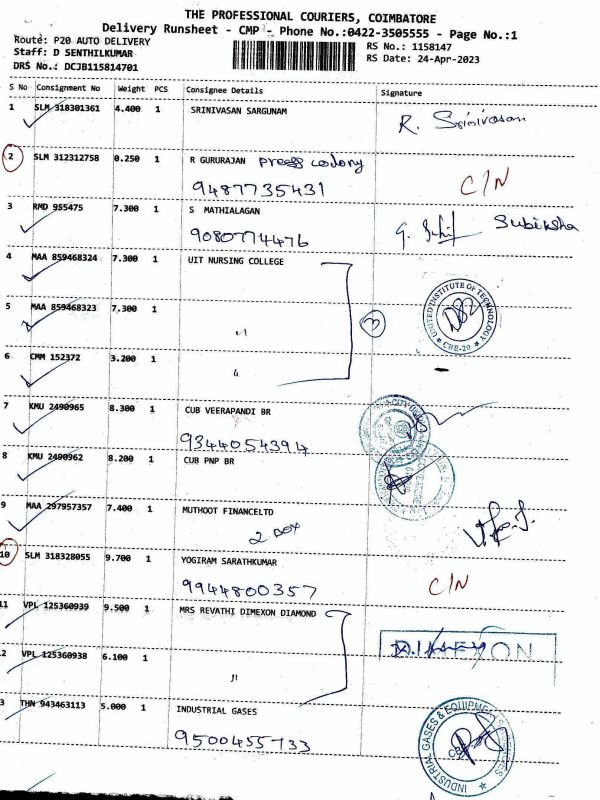 THE PROFESSIONAL COURIERS, COIMBATORE
Delivery Runsheet - CMP - Phone No.:0422-3505555 - Page No.:1
Route: P20 AUTO DELIVERY
RS No.: 1158147
Staff: D SENTHILKUMAR
RS Date: 24-Apr-2023
DRS No.: DCJB115814701
S No Consignment No Weight PCS Consignee Details Signature
1 SLM 318301361 4.400 1 SRINIVASAN SARGUNAM R. Srinivasan
2 SLM 312312758 0.250 1 R GURURAJAN press colony
9487735431 C/N
3 RMD 955475 7.300 1 S MATHIALAGAN
9080774476 Subiksha
4 MAA 859468324 7.300 1 UIT NURSING COLLEGE
5 MAA 859468323 7.300 1 " 3 UNITED INSTITUTE OF TECHNOLOGY * CBE-20 *
6 CMM 152372 3.200 1 "
7 KMU 2490965 8.300 1 CUB VEERAPANDI BR
9344054394
8 KMU 2490962 8.200 1 CUB PNP BR
9 MAA 297957357 7.400 1 MUTHOOT FINANCELTD
2 Box
10 SLM 318328055 9.700 1 YOGIRAM SARATHKUMAR
9944800357 C/N
11 VPL 125360939 9.500 1 MRS REVATHI DIMEXON DIAMOND
DIMEXON
2 VPL 125360938 6.100 1 "
3 THN 943463113 5.000 1 INDUSTRIAL GASES
9500455733 INDUSTRIAL GASES & EQUIPMENT